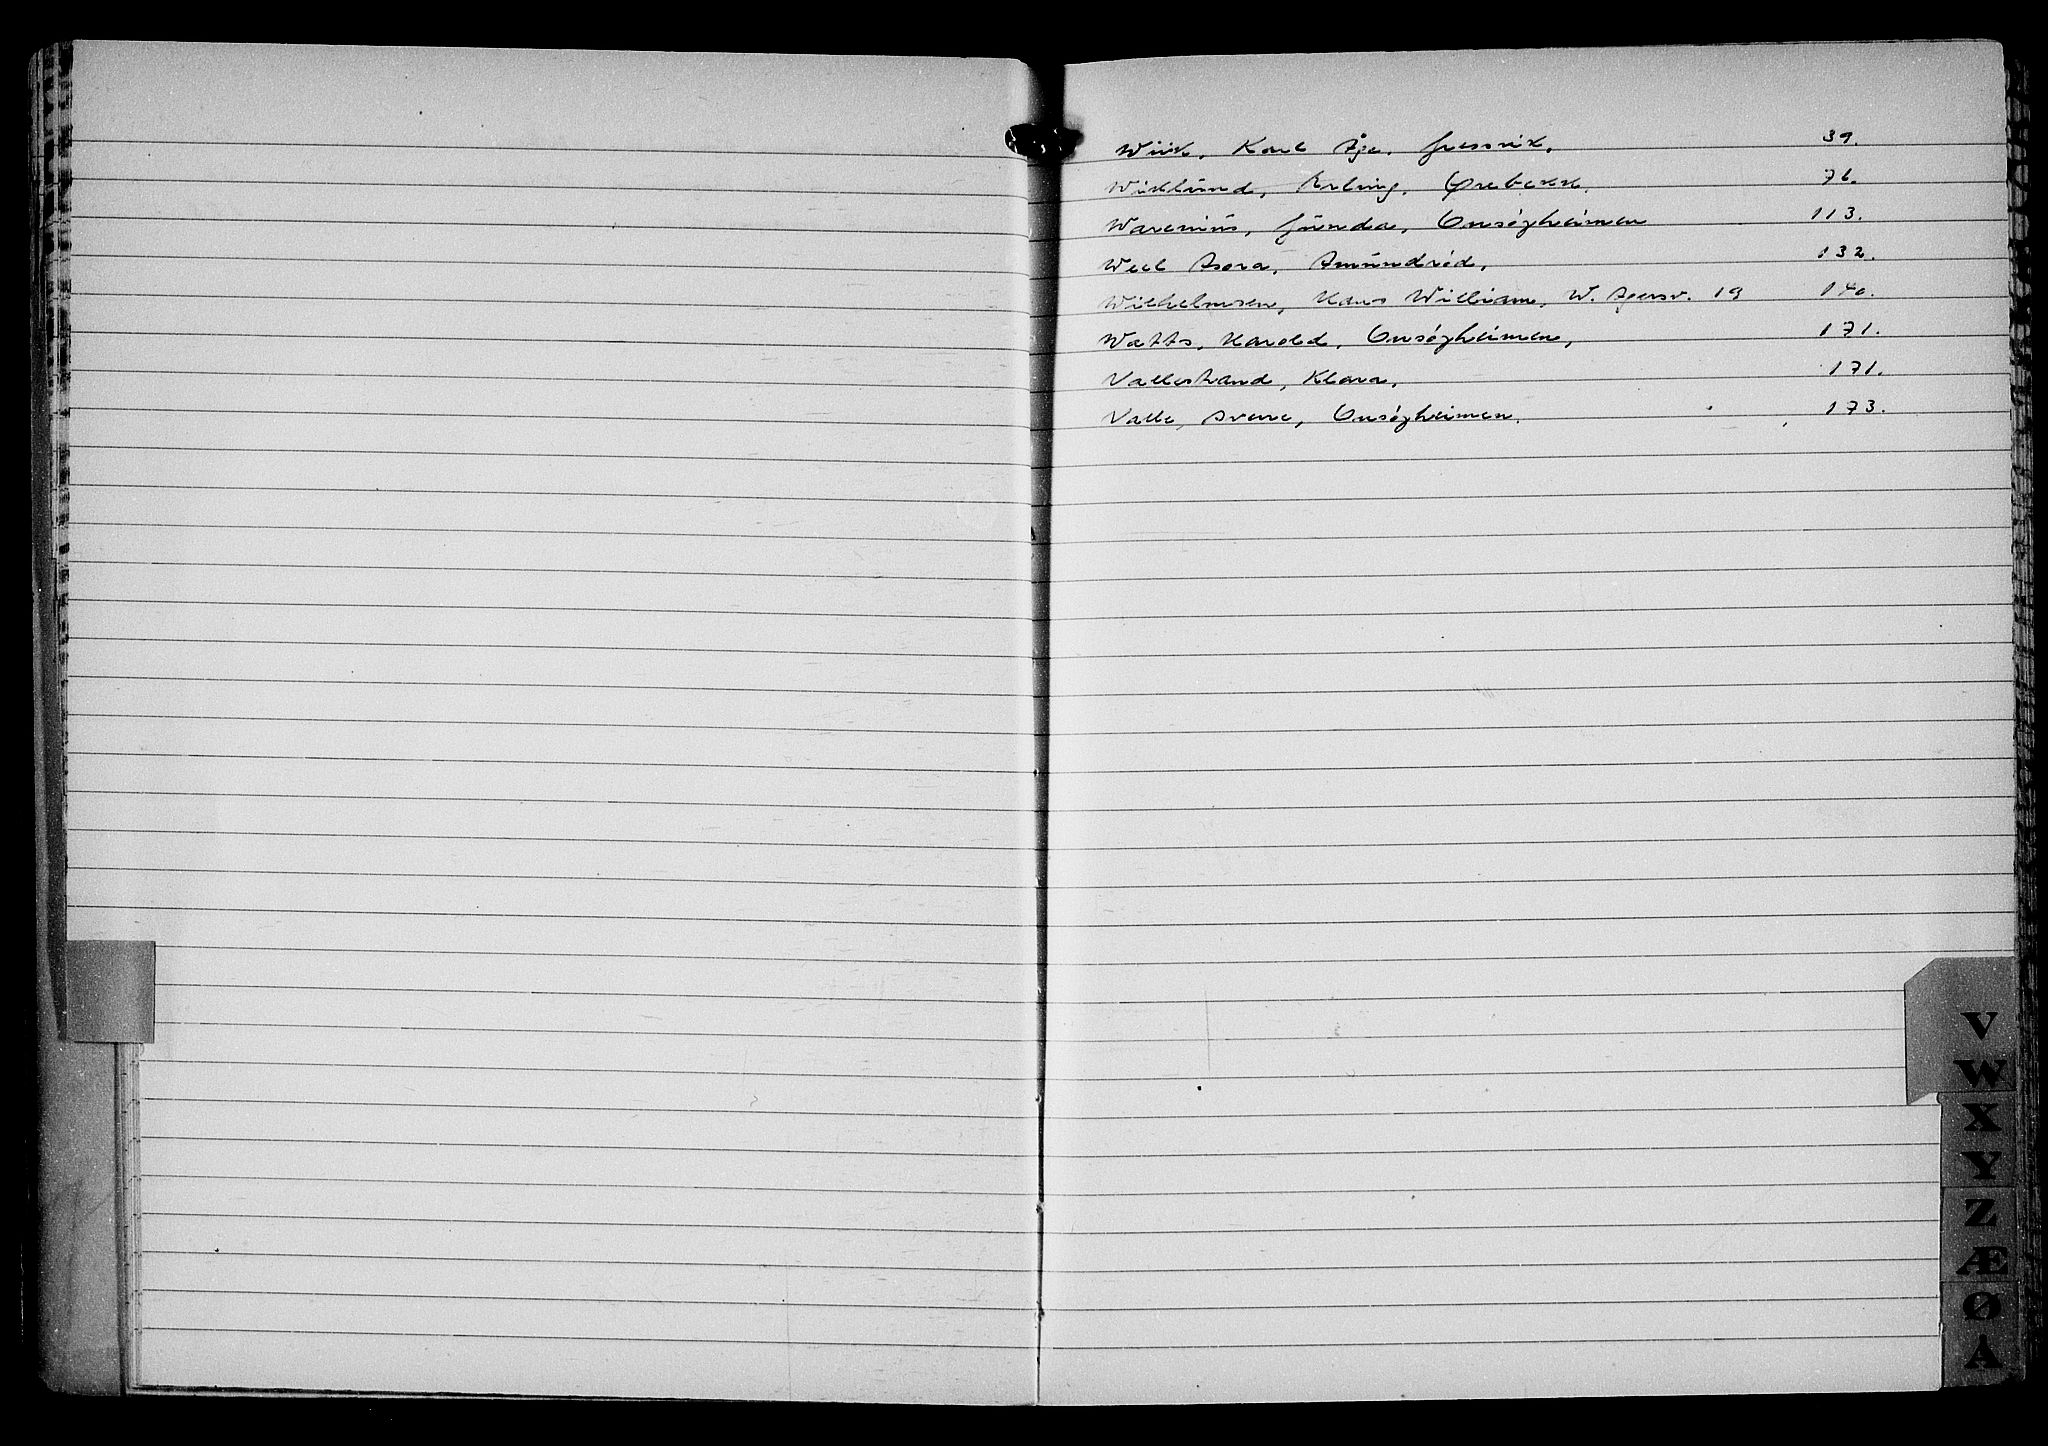 Wiik, Karl Åge, Gressvik, 39.
Wiklund, Erling, Ørebekk. 76.
Warenius, Gunda, Onsøyheimen 113.
Well Asora, Amundrød, 132.
Wilhelmsen, Hans William, W. Agersv. 19 140.
Watts, Harold, Onsøyheimen, 171.
Vallestrand, Klara, 171.
Valle, Svere, Onsøyheimen. 173.
V
W
X
Y
Z
Æ
Ø
A